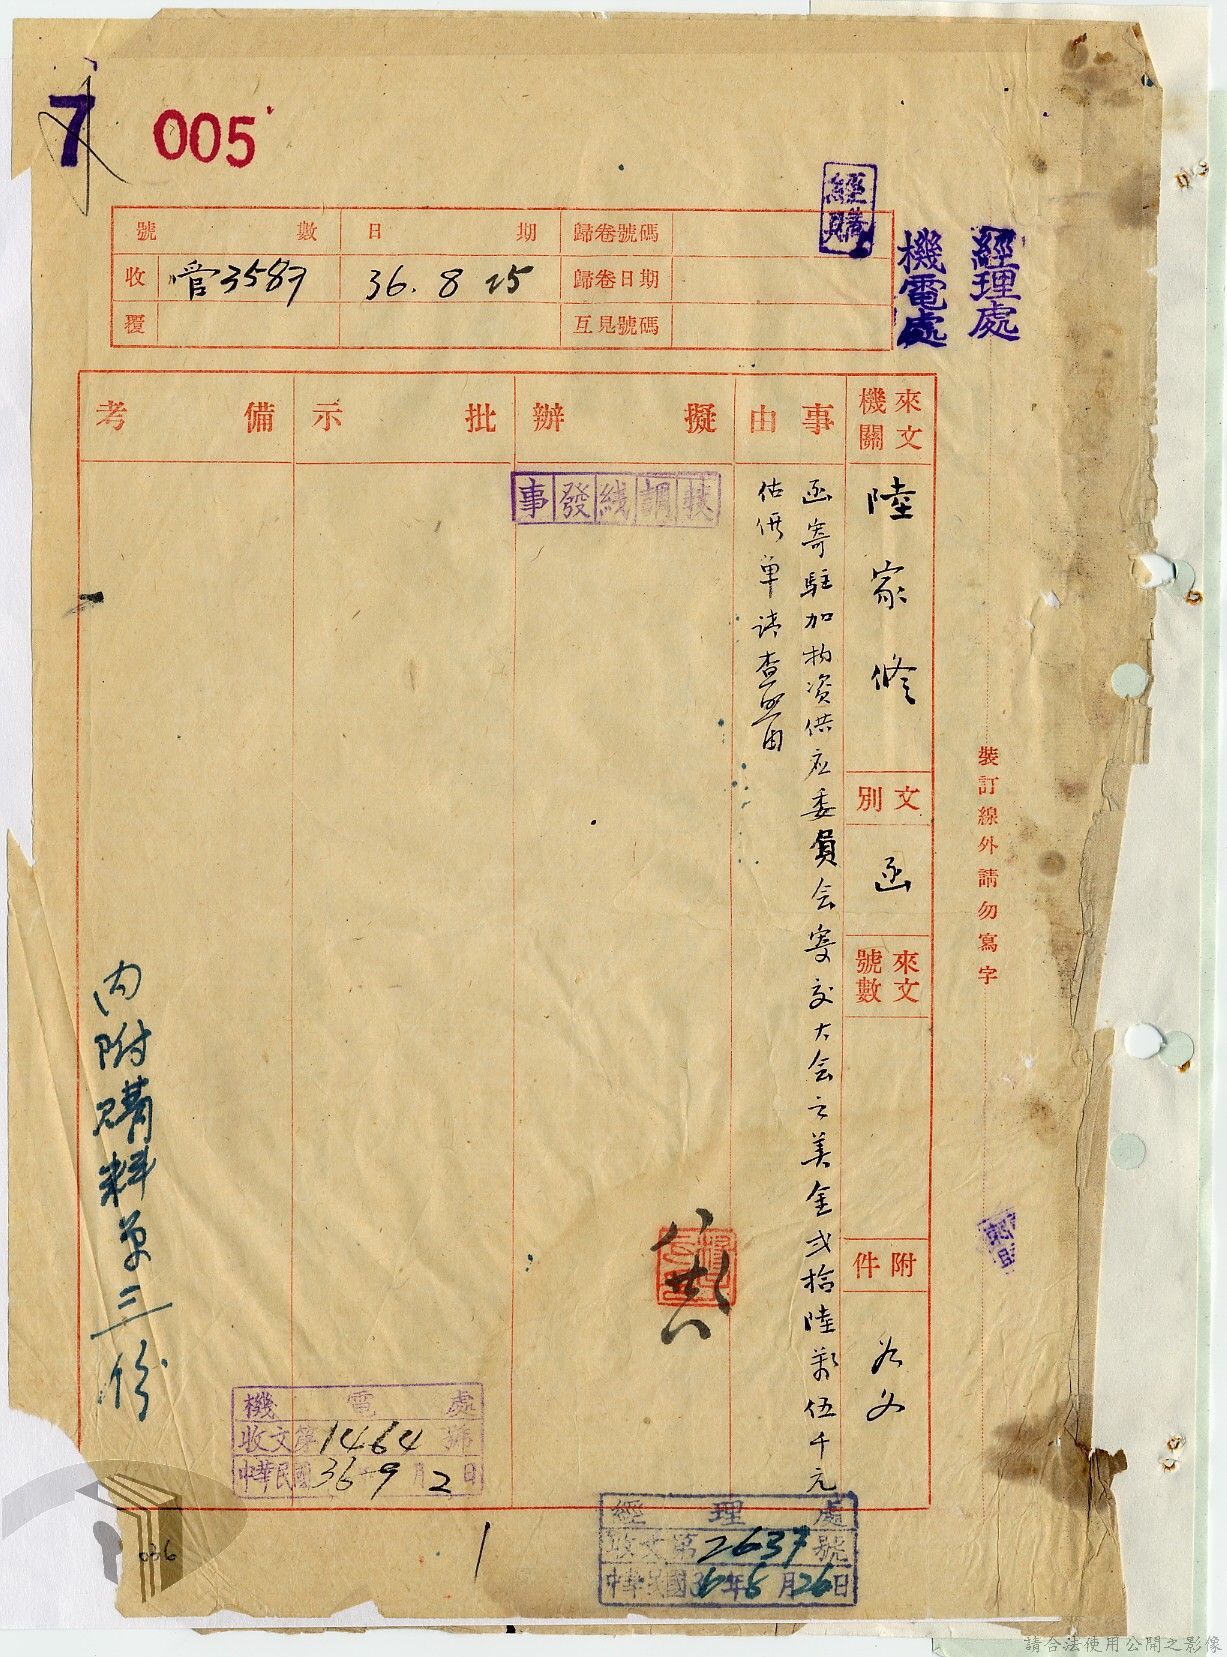 7
005
經購
經理處
機電處
號數 日期 歸卷號碼
收 管3587 36.8 25 歸卷日期
覆 互見號碼
來文機關
陸家修
文別
函
來文號數
附件
如文
事由
函寄駐加物資供应委員会寄交大会之美金弍拾陸萬伍千元
估價单请查照由
擬辦
批示
備考
內附購料單三份
裝訂線外請勿寫字
機電處
收文第1464號
中華民國36年9月2日
經理處
收文第2637號
中華民國36年8月26日
036
請合法使用公開之影像